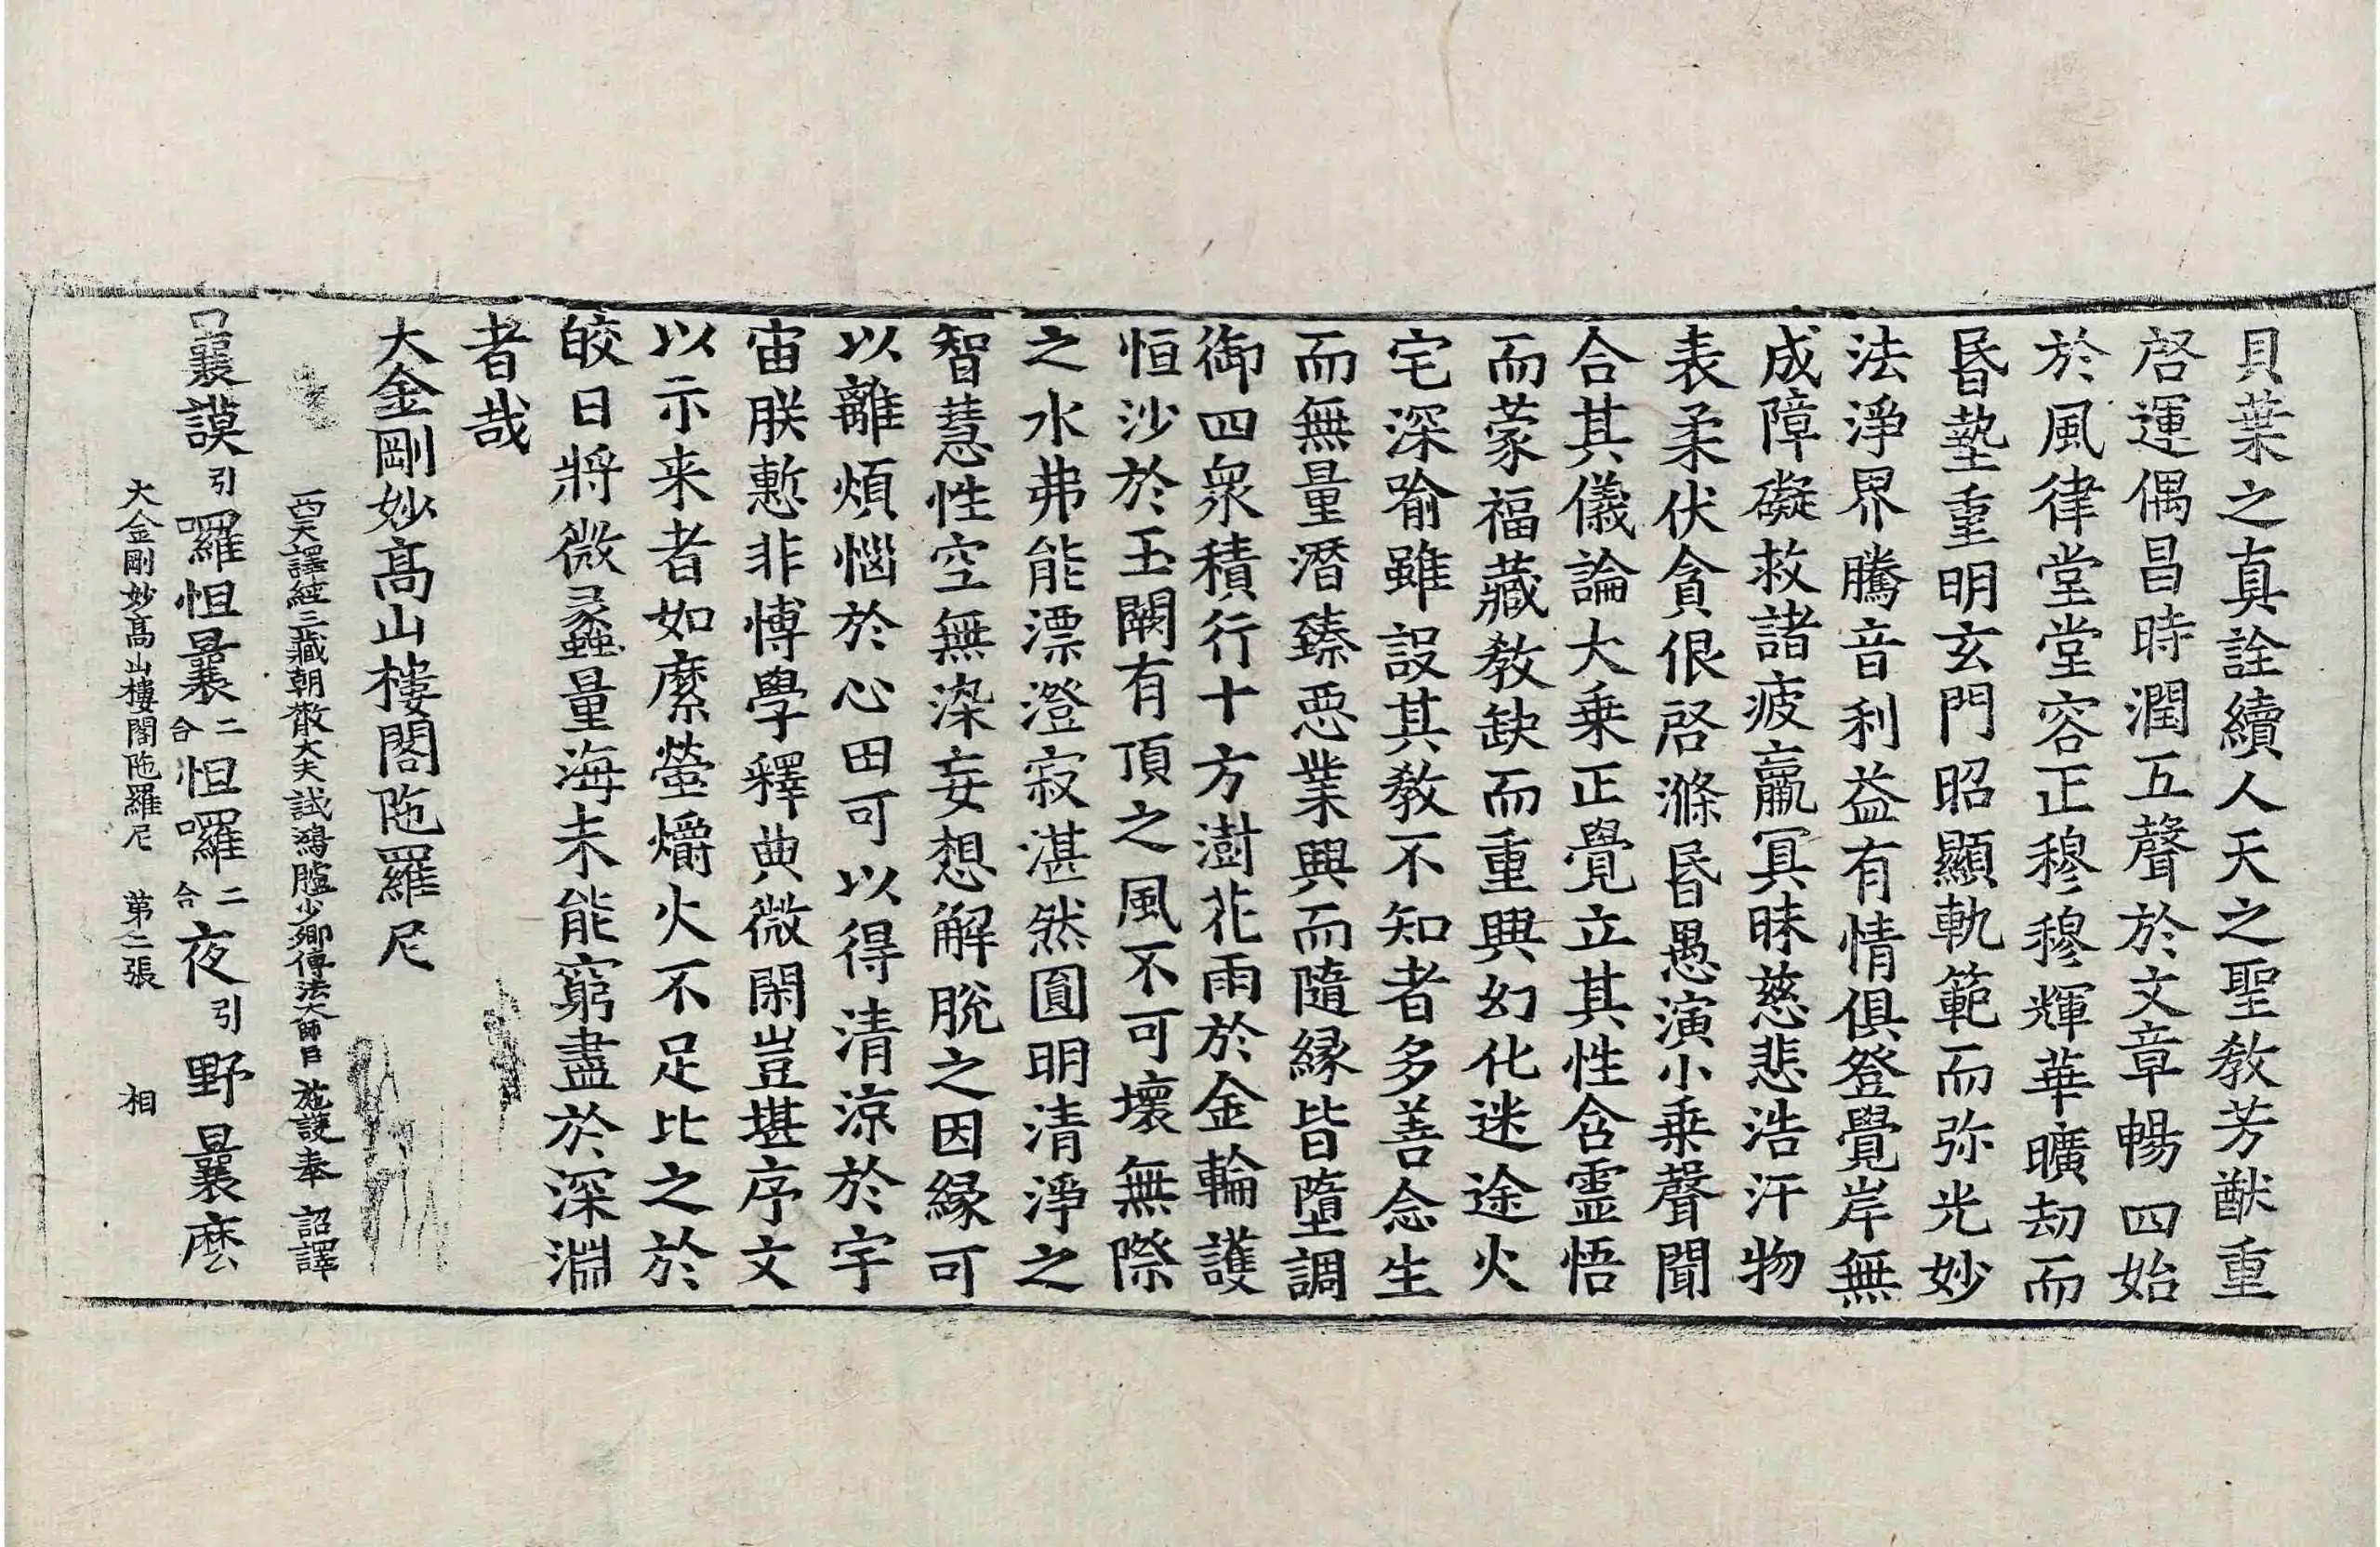 貝葉之真詮續人天之聖教芳猷重
啓運偶昌時潤五聲於文章暢四始
於風律堂堂容正穆穆輝華曠劫而
昏墊重明玄門昭顯軌範而弥光妙
法淨界騰音利益有情俱登覺岸無
成障礙救諸疲羸冥昧慈悲浩汗物
表柔伏貪佷啓滌昏愚演小乗聲聞
合其儀論大乗正覺立其性含靈悟
而蒙福藏教缺而重興幻化迷途火
宅深喻雖設其教不知者多善念生
而無量潛臻惡業興而隨縁皆墮調
御四衆積行十方澍花雨於金輪護
恒沙於玉闕有頂之風不可壞無際
之水弗能漂澄寂湛然圓明清淨之
智慧性空無染妄想解脫之因縁可
以離煩惱於心田可以得清涼於宇
宙朕慙非博學釋典微閑豈堪序文
以示来者如縻螢爝火不足比之於
皎日將微蠡量海未能窮盡於深淵
者哉
大金剛妙高山樓閣陁羅尼
西天譯經三藏朝散大夫試鴻臚少卿傳法大師臣施護奉 詔譯
曩謨引囉怛曩二合怛囉二合夜引野曩麽
大金剛妙高山樓閣陁羅尼 第二張 相